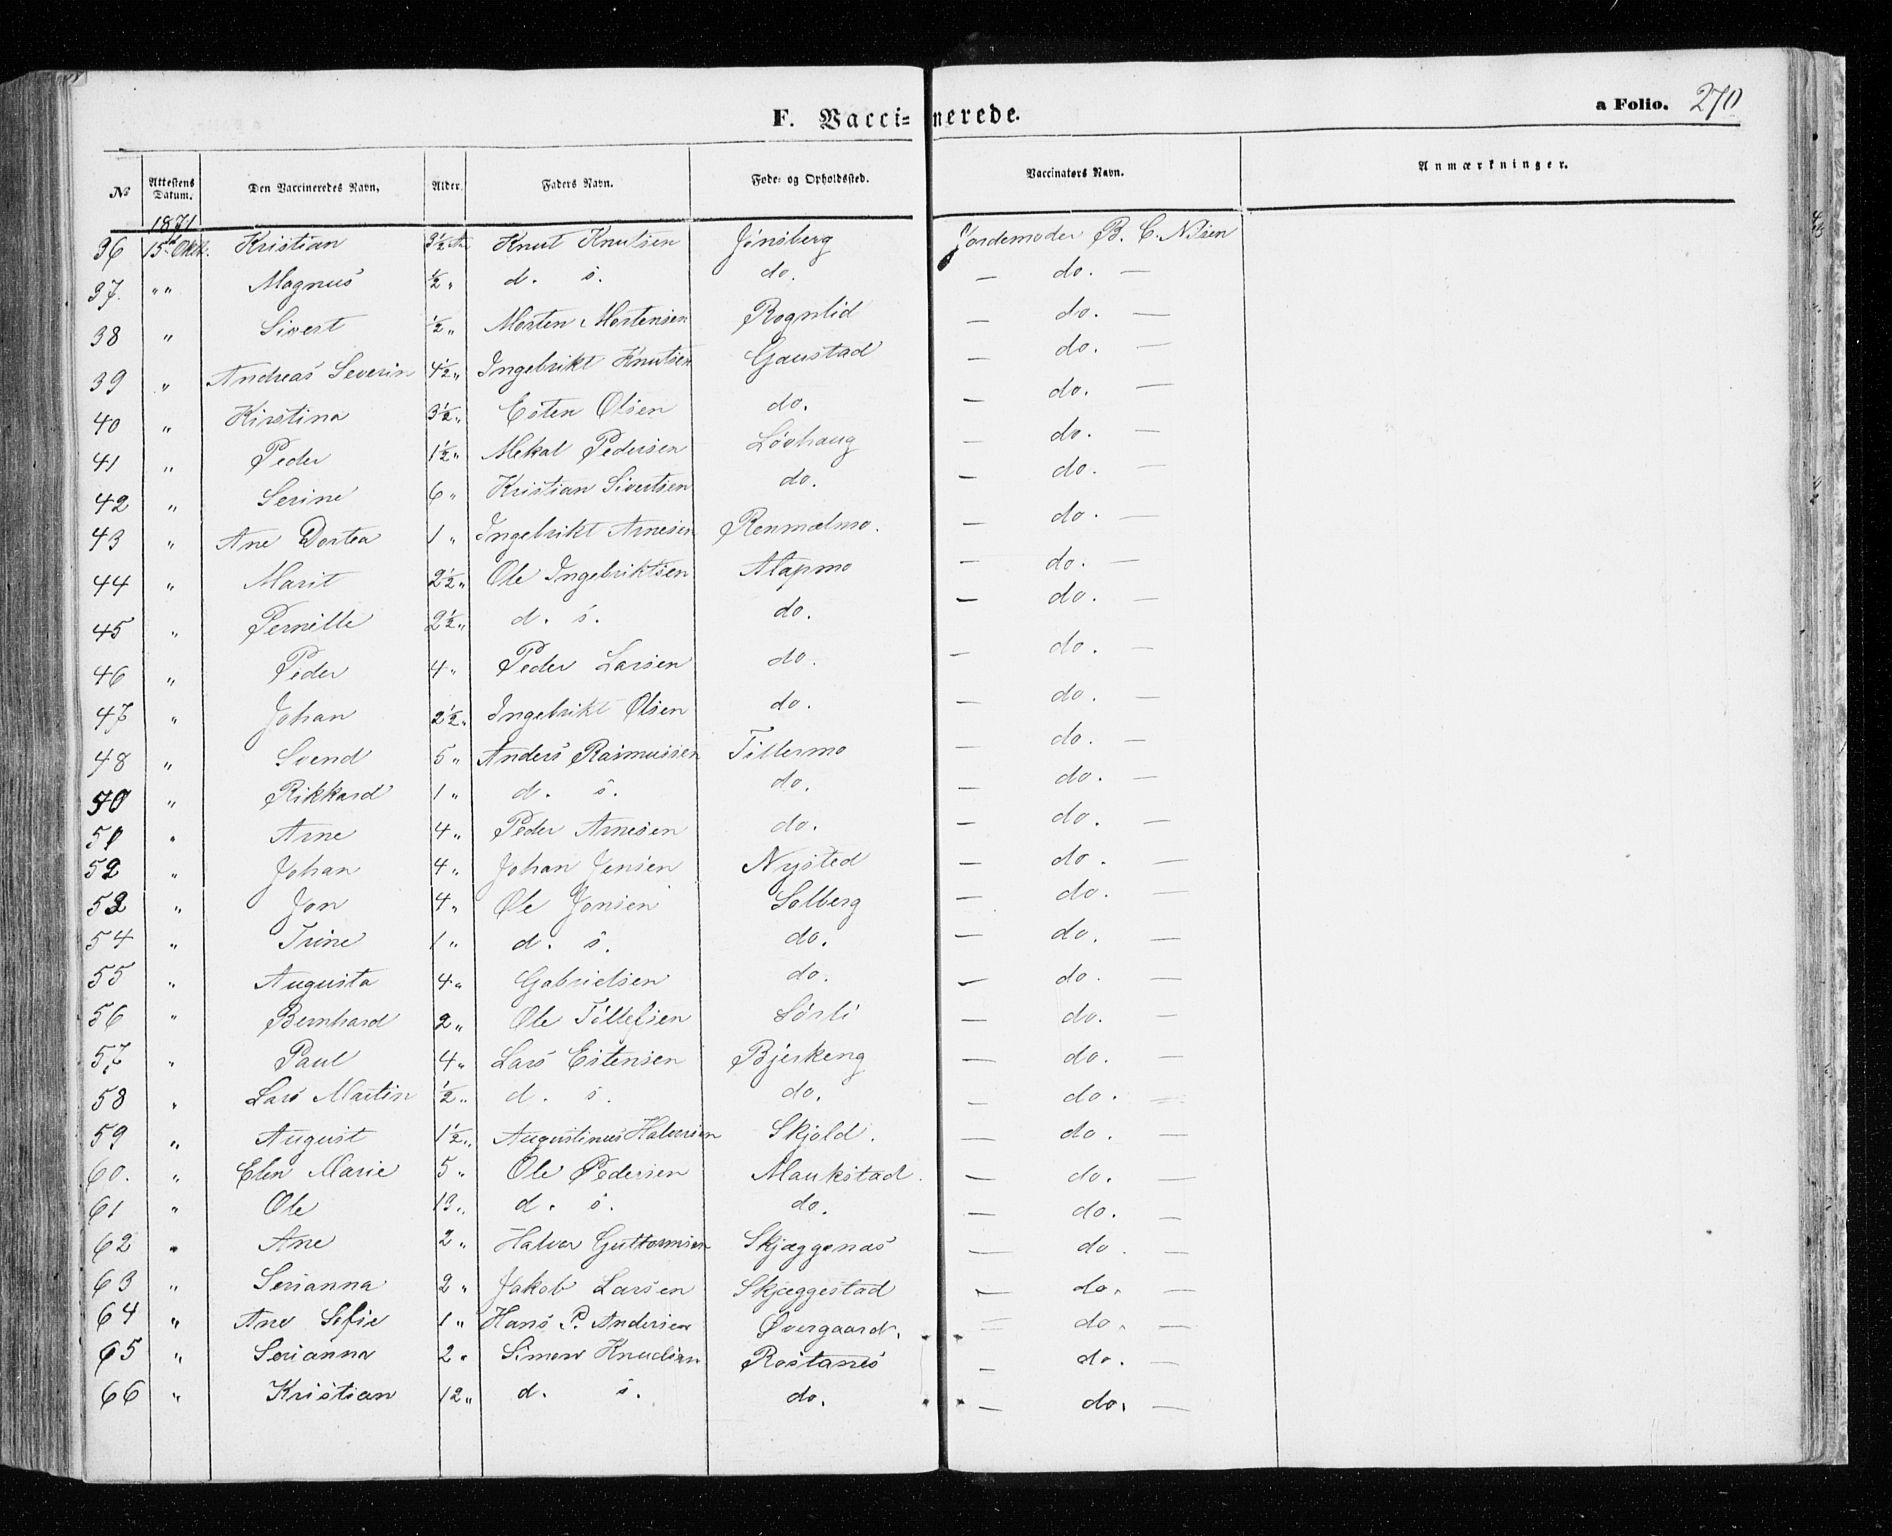 F. Vaccinerede. a Folio. 270
No Attestens Datum. Den Vaccineredes Navn, Alder. Faders Navn. Føde- og Opholdssted. Vaccinatørs Navn. Anmærkninger.
1871
36 15de Oktb. Kristian 3½ A Knut Knutsen Jönsberg Jordemoder B. C. Nilsen
37. " " Magnus ½ " d. s. do. — do. —
38 " Sivert ½ " Morten Mortensen Rognlid — do. —
39 " Andreas Severin 4½ " Ingebrikt Knutsen Gaustad — do. —
40 " Kirstina 3½ " Esten Olsen do. — do. —
41 " Peder 1½ " Mekal Pedersen Lövhaug — do. —
42 " Serine 6 " Kristian Sivertsen do. — do. —
43 " Ane Dortea 1 " Ingebrikt Arnesen Renmælmo. — do. —
44 " Marit 2½ " Ole Ingebriktsen Alapmo — do. —
45 " Pernille 2½ " d. s. do. — do. —
46 " Peder 4 " Peder Larsen do. — do. —
47 " Johan 2½ " Ingebrikt Olsen do. — do. —
48 " Svend 5 " Anders Rasmussen Töllermo — do. —
50 " Rikkard 1 " d. s. do. — do. —
51 " Arne 4 " Peder Arnesen do. — do. —
52 " Johan 4 " Johan Jensen Nysted — do. —
53 " Jon 4 " Ole Jonsen Solberg — do. —
54 " Trine 1 " d. s. do. — do. —
55 " Augusta 4 " Gabrielsen do. — do. —
56 " Bernhard 2 " Ole Töllefsen Sörli — do. —
57 " Paul 4 " Lars Estensen Bjerkeng — do. —
58 " Lars Martin ½ " d. s. do. — do. —
59 " August 1½ " Augustinus Halvorsen Skjold. — do. —
60. " Elen Marie 5 " Ole Pedersen Maukstad. — do. —
61 " Ole 13 " d. s. do. — do. —
62 " Ane 2 " Halvor Guttormsen Skjæggenæs — do. —
63 " Serianna 2 " Jakob Larsen Skjæggestad — do. —
64 " Ane Sofie 1 " Hans P. Andersen Övergaard. — do. —
65 " Serianna 2 " Simon Knudsen Rostanes — do. —
66 " Kristian 12 " d. s. do. — do. —